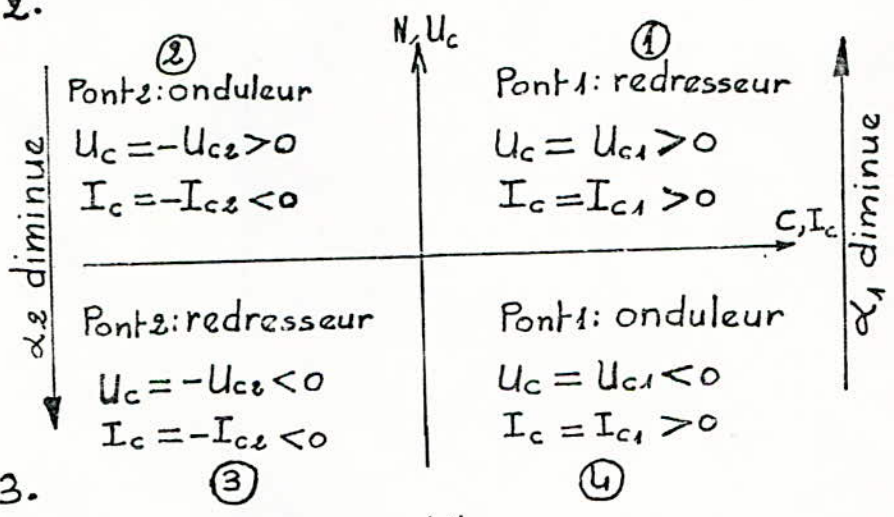 2.
N, Uc
②
Pont2: onduleur
Uc = -Uc2 > 0
Ic = -Ic2 < 0
①
Pont1: redresseur
Uc = Uc1 > 0
Ic = Ic1 > 0
C, Ic
α2 diminue
α1 diminue
Pont2: redresseur
Uc = -Uc2 < 0
Ic = -Ic2 < 0
③
Pont1: onduleur
Uc = Uc1 < 0
Ic = Ic1 > 0
④
3.